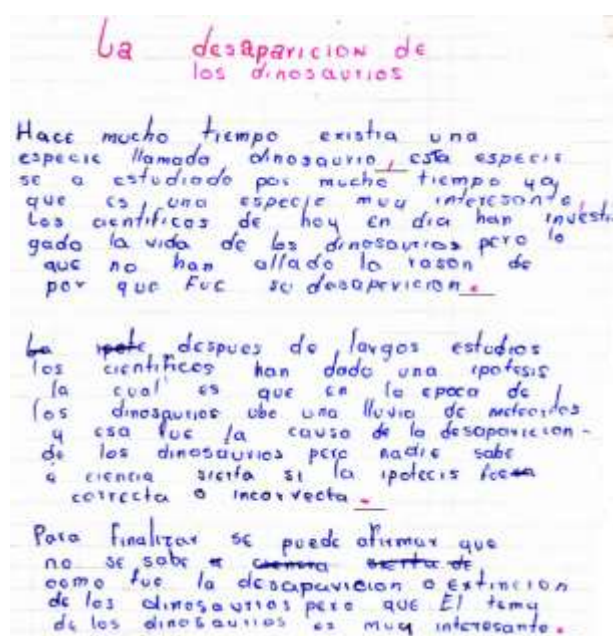 La desaparicion de
los dinosaurios
Hace mucho tiempo existia una
especie llamada dinosaurio, esta especie
se a estudiado por mucho tiempo ya
que es una especie muy interesante,
Los cientificos de hoy en dia han investi
gado la vida de los dinosaurios pero lo
que no han allado la rason de
por que Fue su desaparicion.
La despues de largos estudios
los cientificos han dado una ipotesis
la cual es que en la epoca de
los dinosaurios ubo una lluvia de meteoritos
y esa fue la causa de la desaparicion-
de los dinosaurios pero nadie sabe
a ciencia sierta si la ipotecis fue
correcta o incorrecta.
Para finalizar se puede afirmar que
no se sabe a ciencia sierta de
como fue la desaparicion o extincion
de los dinosaurios pero que El tema
de los dinosaurios es muy interesante.